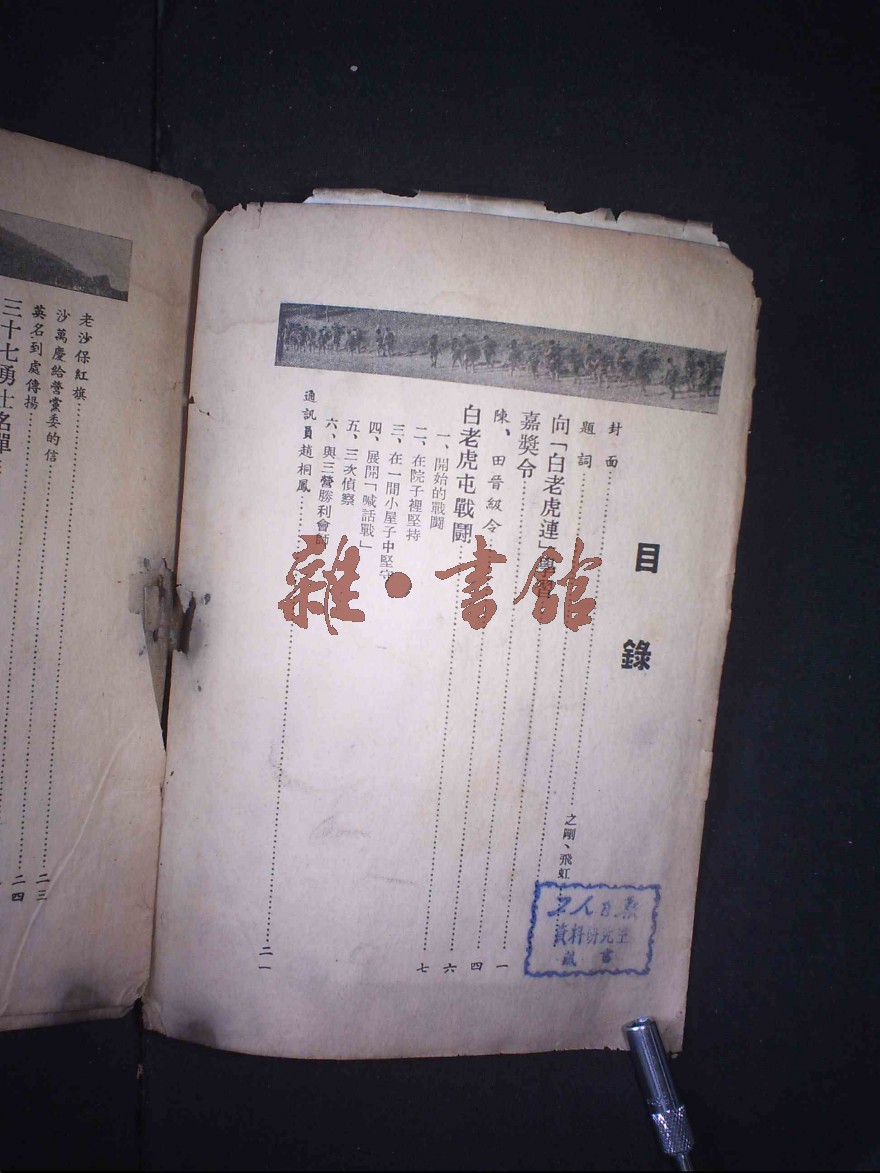 目錄
封面
題詞……之剛、飛虹
向「白老虎連」學習……一
嘉獎令……四
陳、田晉級令……六
白老虎屯戰鬪……七
一、開始的戰鬪
二、在院子裡堅持
三、在一間小屋子中堅守
四、展開「喊話戰」
五、三次偵察
六、與三營勝利會師
通訊員趙桐鳳……二一
老沙保紅旗
沙萬慶給營黨委的信……二三
英名到處傳揚……二四
三十七勇士名單
雜·書館
工人日報
資料研究室
藏書